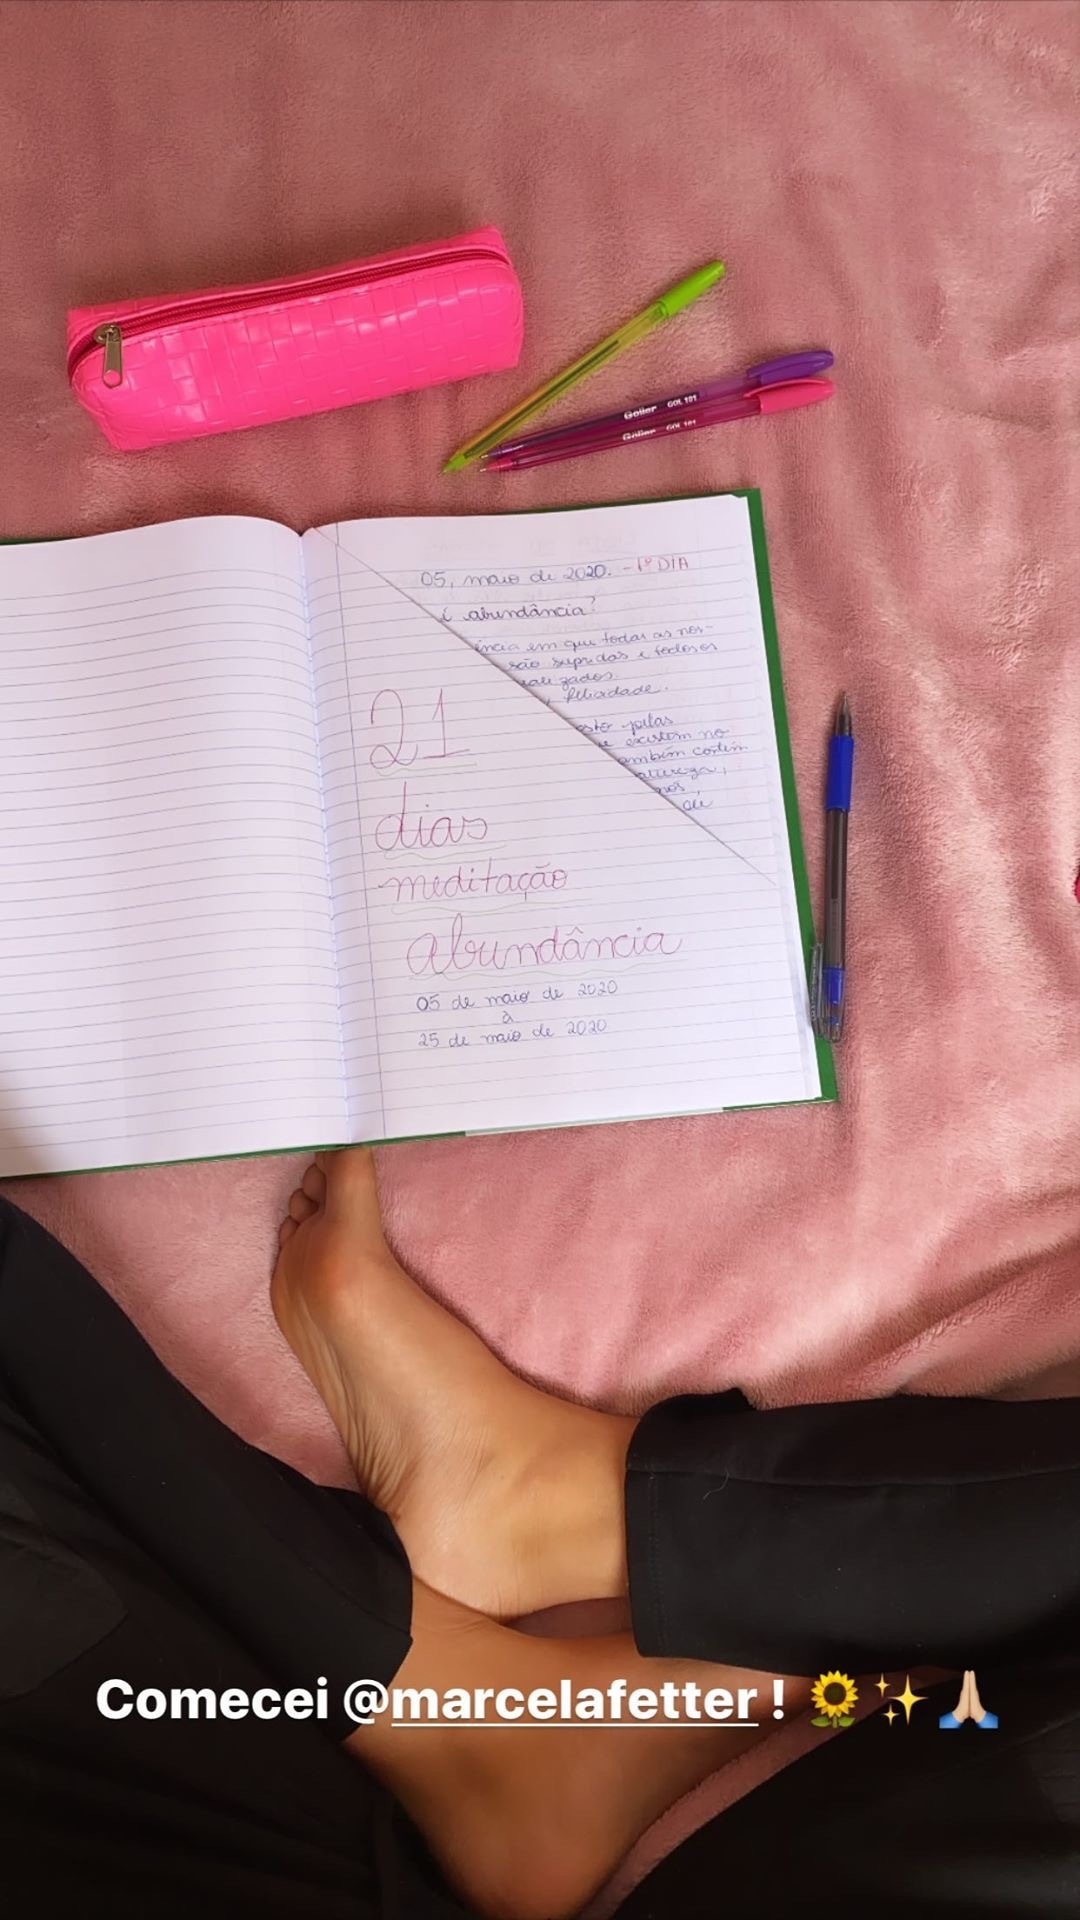 Goller GOL 101
Goller GOL 101
05, maio de 2020. - 1º DIA
é abundância?
ência em que todas as nos-
são supridas e todos os
alizados.
, felicidade.
osto pelas
e existem no
ambém contém
atureza,
nós,
de
21
dias
meditação
abundância
05 de maio de 2020
à
25 de maio de 2020
Comecei @marcelafetter ! 🌻✨🙏🏻